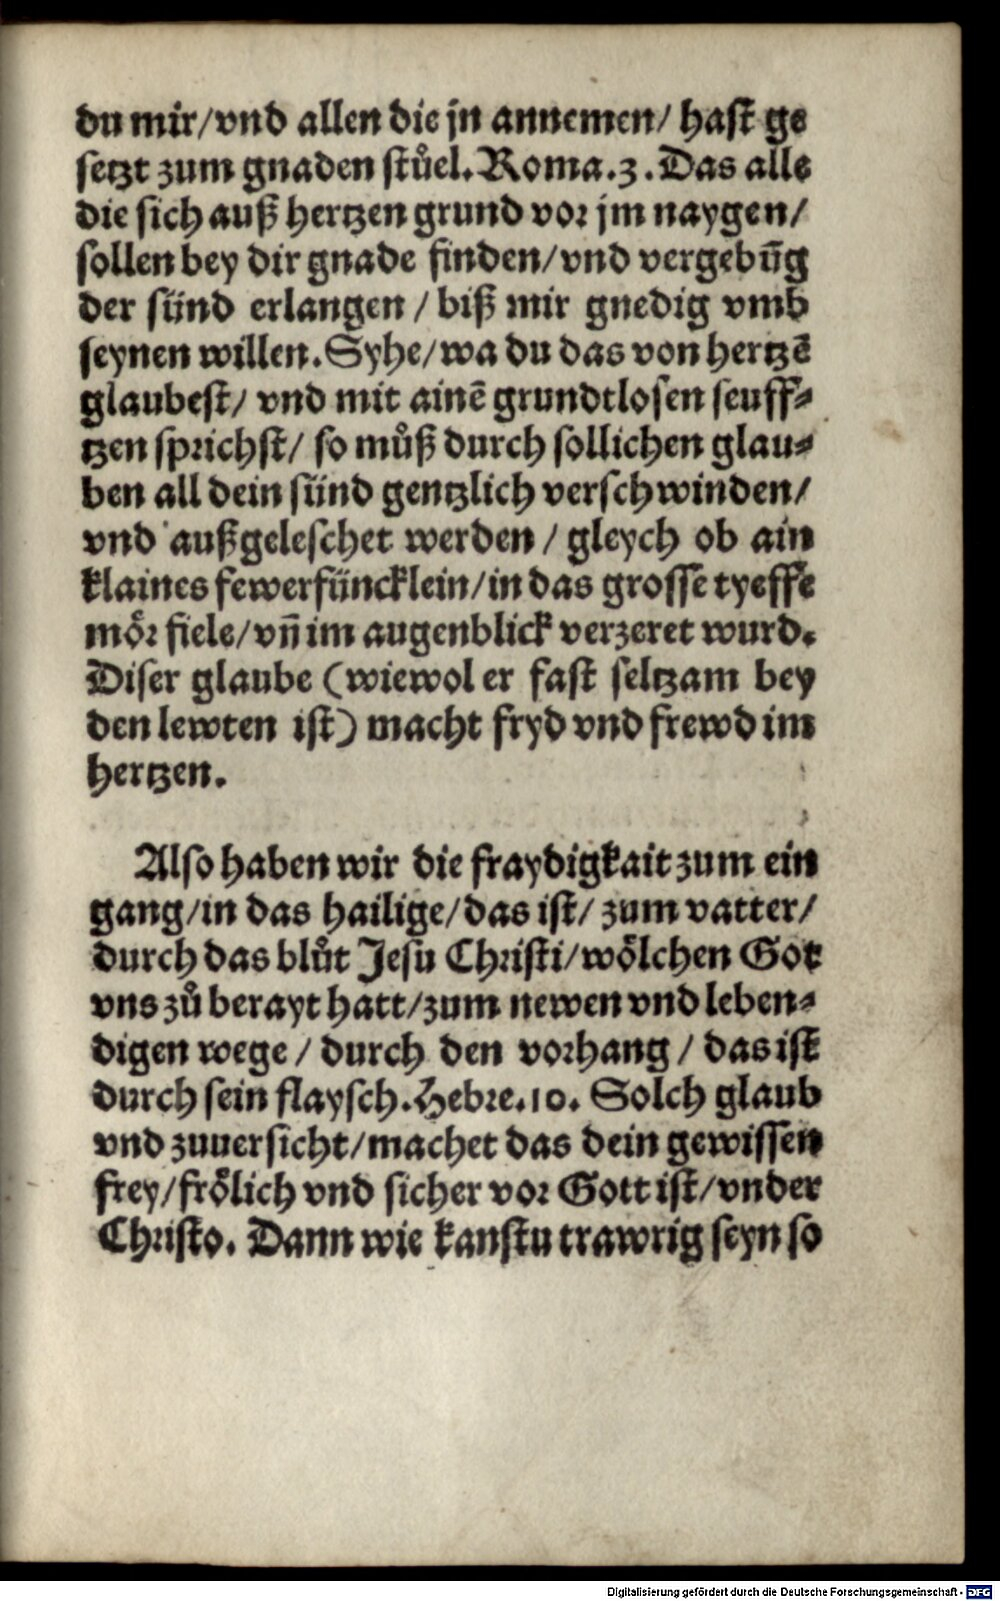 du mir/vnd allen die jn annemen/ hast ge
setzt zum gnaden stůel. Roma.3. Das alle
die sich auß hertzen grund vor jm naygen/
sollen bey dir gnade finden/vnd vergebūg
der sünd erlangen / biß mir gnedig vmb
seynen willen. Syhe/wa du das von hertzē
glaubest/ vnd mit ainē grundtlosen seuff⸗
tzen sprichst/ so můß durch sollichen glau⸗
ben all dein sünd gentzlich verschwinden/
vnd außgeleschet werden / gleych ob ain
klaines fewerfüncklein/in das grosse tyeffe
mör fiele/vñ im augenblick verzeret wurd.
Diser glaube (wiewol er fast seltzam bey
den lewten ist) macht fryd vnd frewd im
hertzen.
Also haben wir die fraydigkait zum ein
gang/in das hailige/das ist/ zum vatter/
durch das blůt Jesu Christi/wölchen Got
vns zů berayt hatt/zum newen vnd leben⸗
digen wege / durch den vorhang / das ist
durch sein flaysch. Hebre.10. Solch glaub
vnd zuuersicht/machet das dein gewissen
frey/frölich vnd sicher vor Gott ist/vnder
Christo. Dann wie kanstu trawrig seyn so
Digitalisierung gefördert durch die Deutsche Forschungsgemeinschaft - DFG